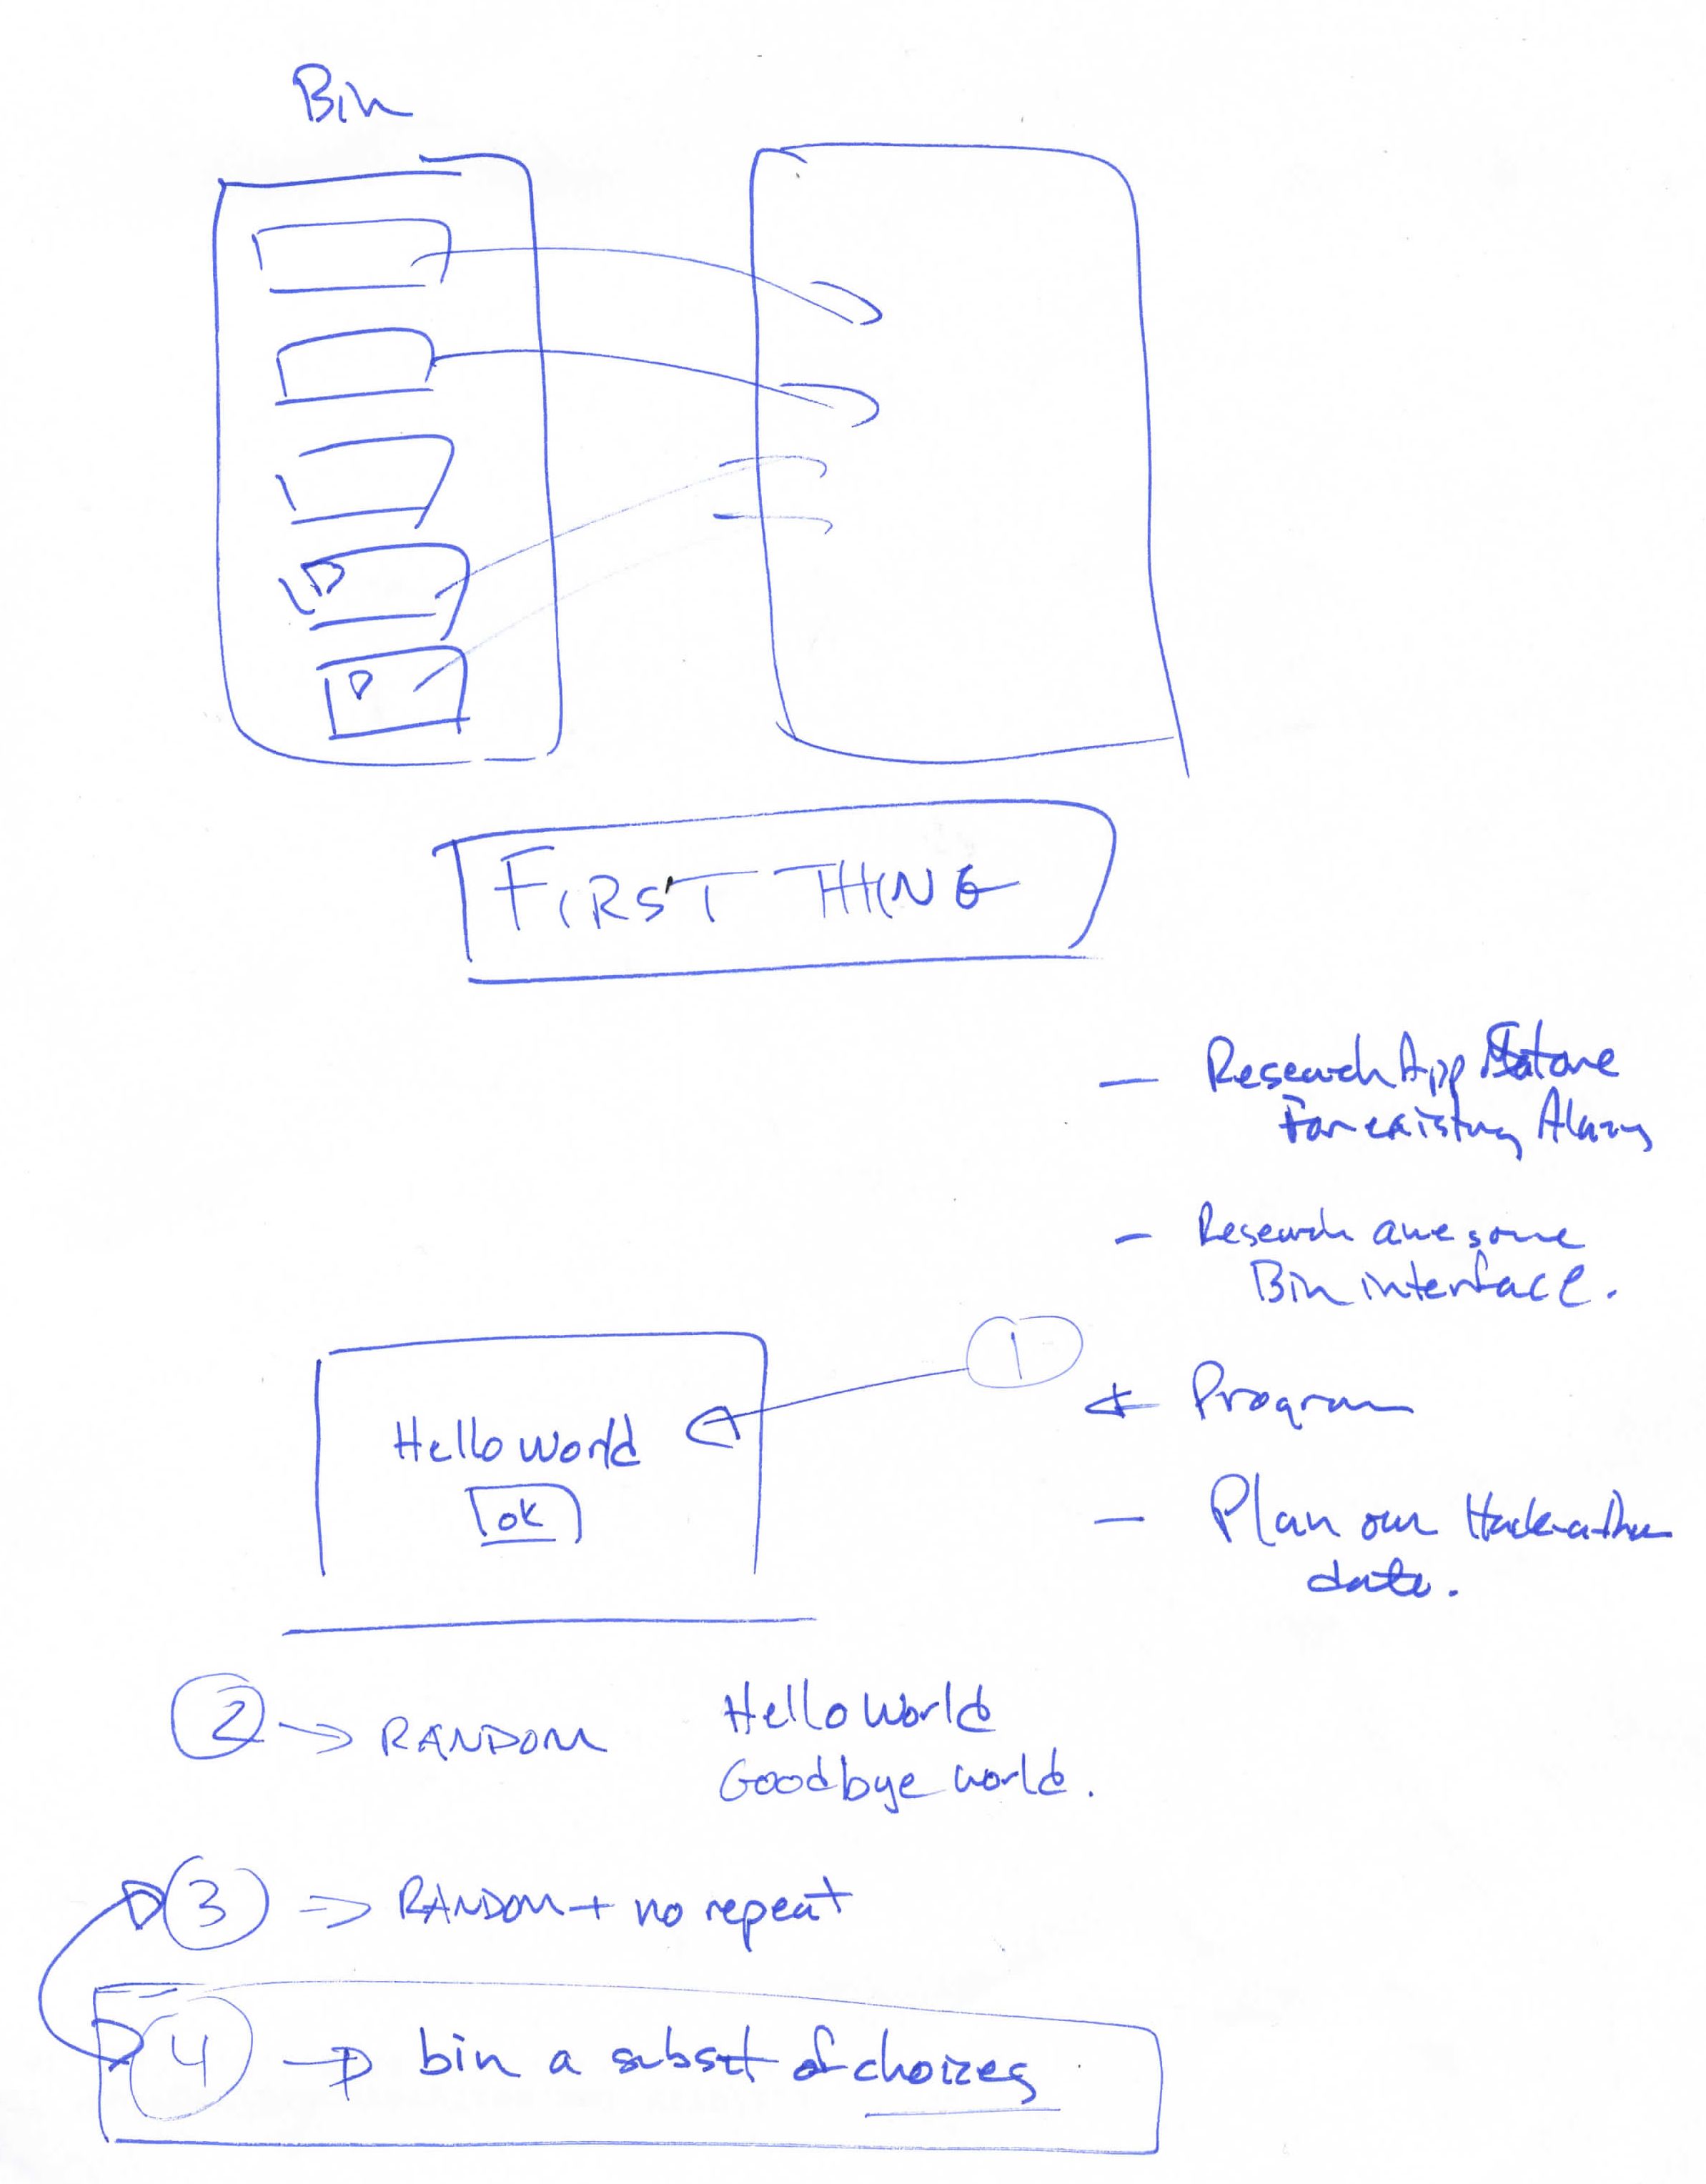 Bin
FIRST THING
— Research App Store
For existing Alarms
— Research awesome
Bin interface.
Program
— Plan our Hack-a-thon
date.
1
Hello World
OK
2 → RANDOM
Hello World
Goodbye world.
3 ⇒ RANDOM + no repeat
4 → bin a subset of choices